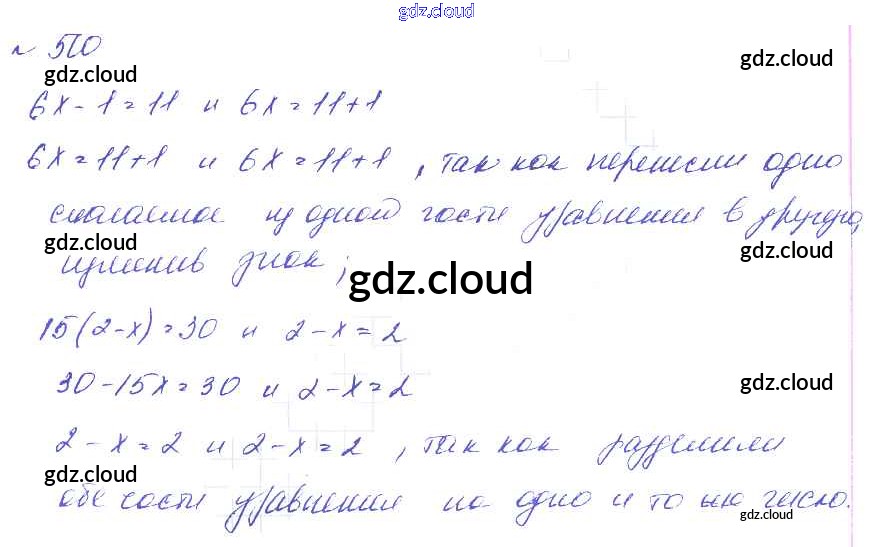 gdz.cloud
№ 510
gdz.cloud gdz.cloud
6x - 1 = 11 и 6x = 11 + 1
6x = 11 + 1 и 6x = 11 + 1, так как перенесли одно
gdz.cloud
слагаемое из одной части уравнения в другую,
gdz.cloud gdz.cloud
изменив знак;
gdz.cloud
15(2-x) = 30 и 2 - x = 2
30 - 15x = 30 и 2 - x = 2
gdz.cloud
2 - x = 2 и 2 - x = 2, так как разделили
gdz.cloud
обе части уравнения на одно и то же число.
gdz.cloud